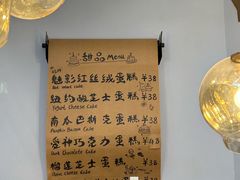 甜品Menu
魅影红丝绒蛋糕 ¥38
Red Velvet Cake
纽约酸芝士蛋糕 ¥38
Yogurt Cheese Cake
南瓜巴斯克蛋糕 ¥38
Pumpkin Basque Cake
爱神巧克力蛋糕 ¥48
Dark Chocolate Cake
榴莲芝士蛋糕 ¥38
Cheese Cake